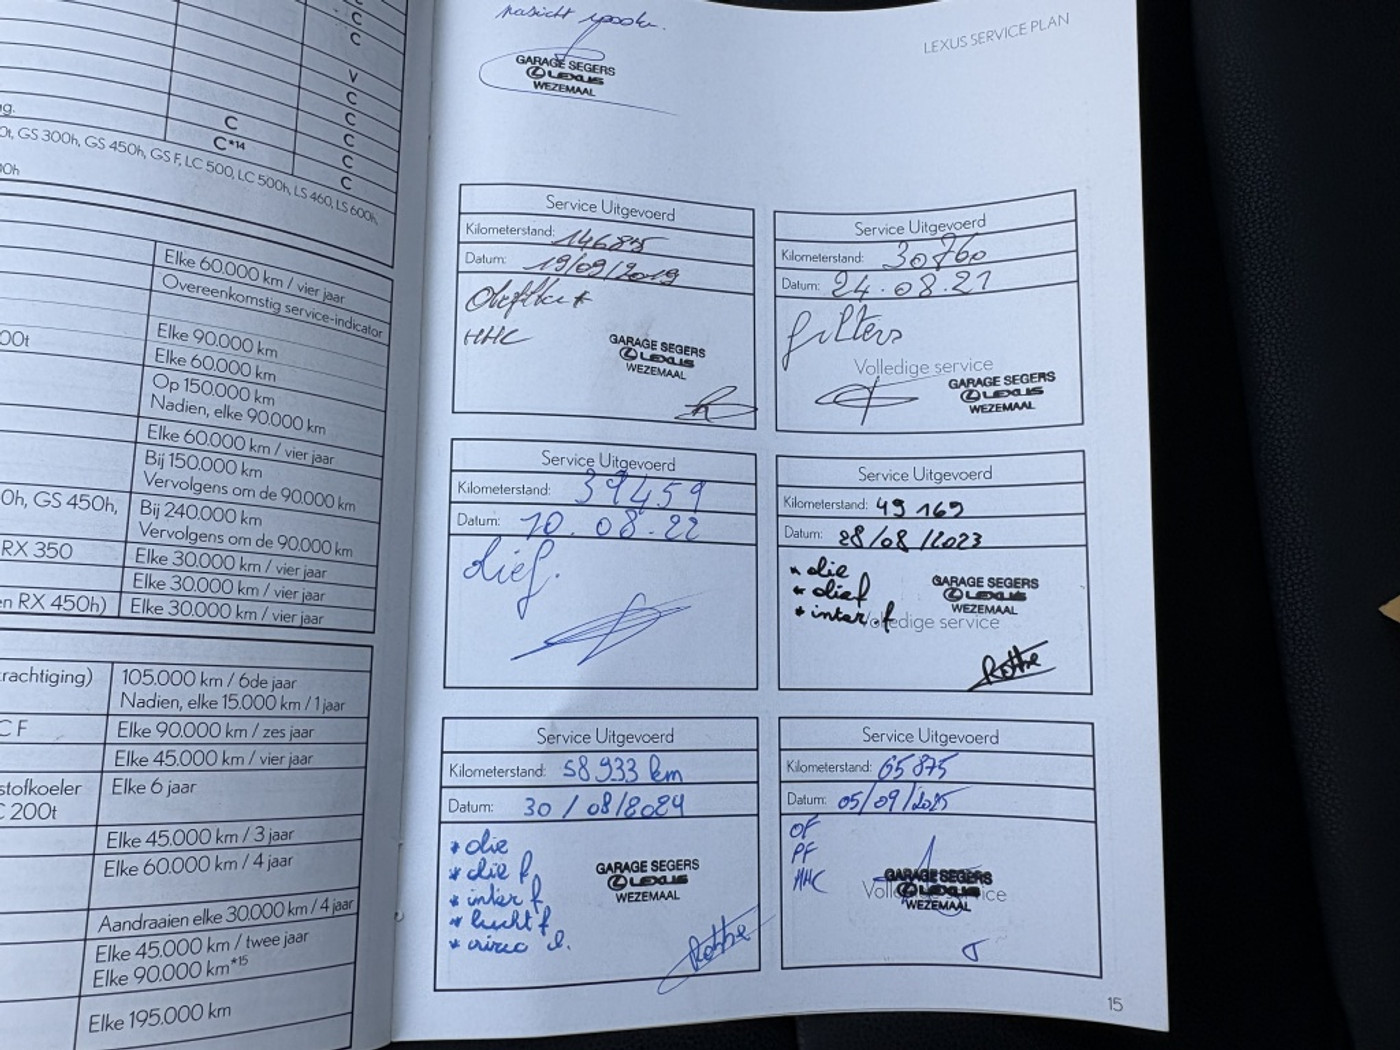 C
C
V
C
C
C
C
C
C
C*14
ng.
0t, GS 300h, GS 450h, GS F, LC 500, LC 500h, LS 460, LS 600h,
00h
Elke 60.000 km / vier jaar
Overeenkomstig service-indicator
Elke 90.000 km
00t
Elke 60.000 km
Op 150.000 km
Nadien, elke 90.000 km
Elke 60.000 km / vier jaar
Bij 150.000 km
Vervolgens om de 90.000 km
0h, GS 450h,
Bij 240.000 km
Vervolgens om de 90.000 km
RX 350
Elke 30.000 km / vier jaar
Elke 30.000 km / vier jaar
en RX 450h)
Elke 30.000 km / vier jaar
rachtiging)
105.000 km / 6de jaar
Nadien, elke 15.000 km / 1 jaar
C F
Elke 90.000 km / zes jaar
Elke 45.000 km / vier jaar
stofkoeler
Elke 6 jaar
C 200t
Elke 45.000 km / 3 jaar
Elke 60.000 km / 4 jaar
Aandraaien elke 30.000 km / 4 jaar
Elke 45.000 km / twee jaar
Elke 90.000 km*15
Elke 195.000 km
LEXUS SERVICE PLAN
nazicht
GARAGE SEGERS
LEXUS
WEZEMAAL
Service Uitgevoerd
Kilometerstand: 14685
Datum: 19/09/2019
HHC
GARAGE SEGERS
LEXUS
WEZEMAAL
Service Uitgevoerd
Kilometerstand: 30760
Datum: 24.08.21
filters
Volledige service
GARAGE SEGERS
LEXUS
WEZEMAAL
Service Uitgevoerd
Kilometerstand: 39459
Datum: 10.08.22
olief.
Service Uitgevoerd
Kilometerstand: 49 169
Datum: 28/08/2023
* olie
* olief
* inter.f
Volledige service
GARAGE SEGERS
LEXUS
WEZEMAAL
Service Uitgevoerd
Kilometerstand: 58 933 km
Datum: 30/08/2024
* olie
* olie f
* inter f
* lucht f
GARAGE SEGERS
LEXUS
WEZEMAAL
Service Uitgevoerd
Kilometerstand: 65875
Datum: 05/09/2025
OF
PF
HHC
Volledige service
GARAGE SEGERS
LEXUS
WEZEMAAL
15